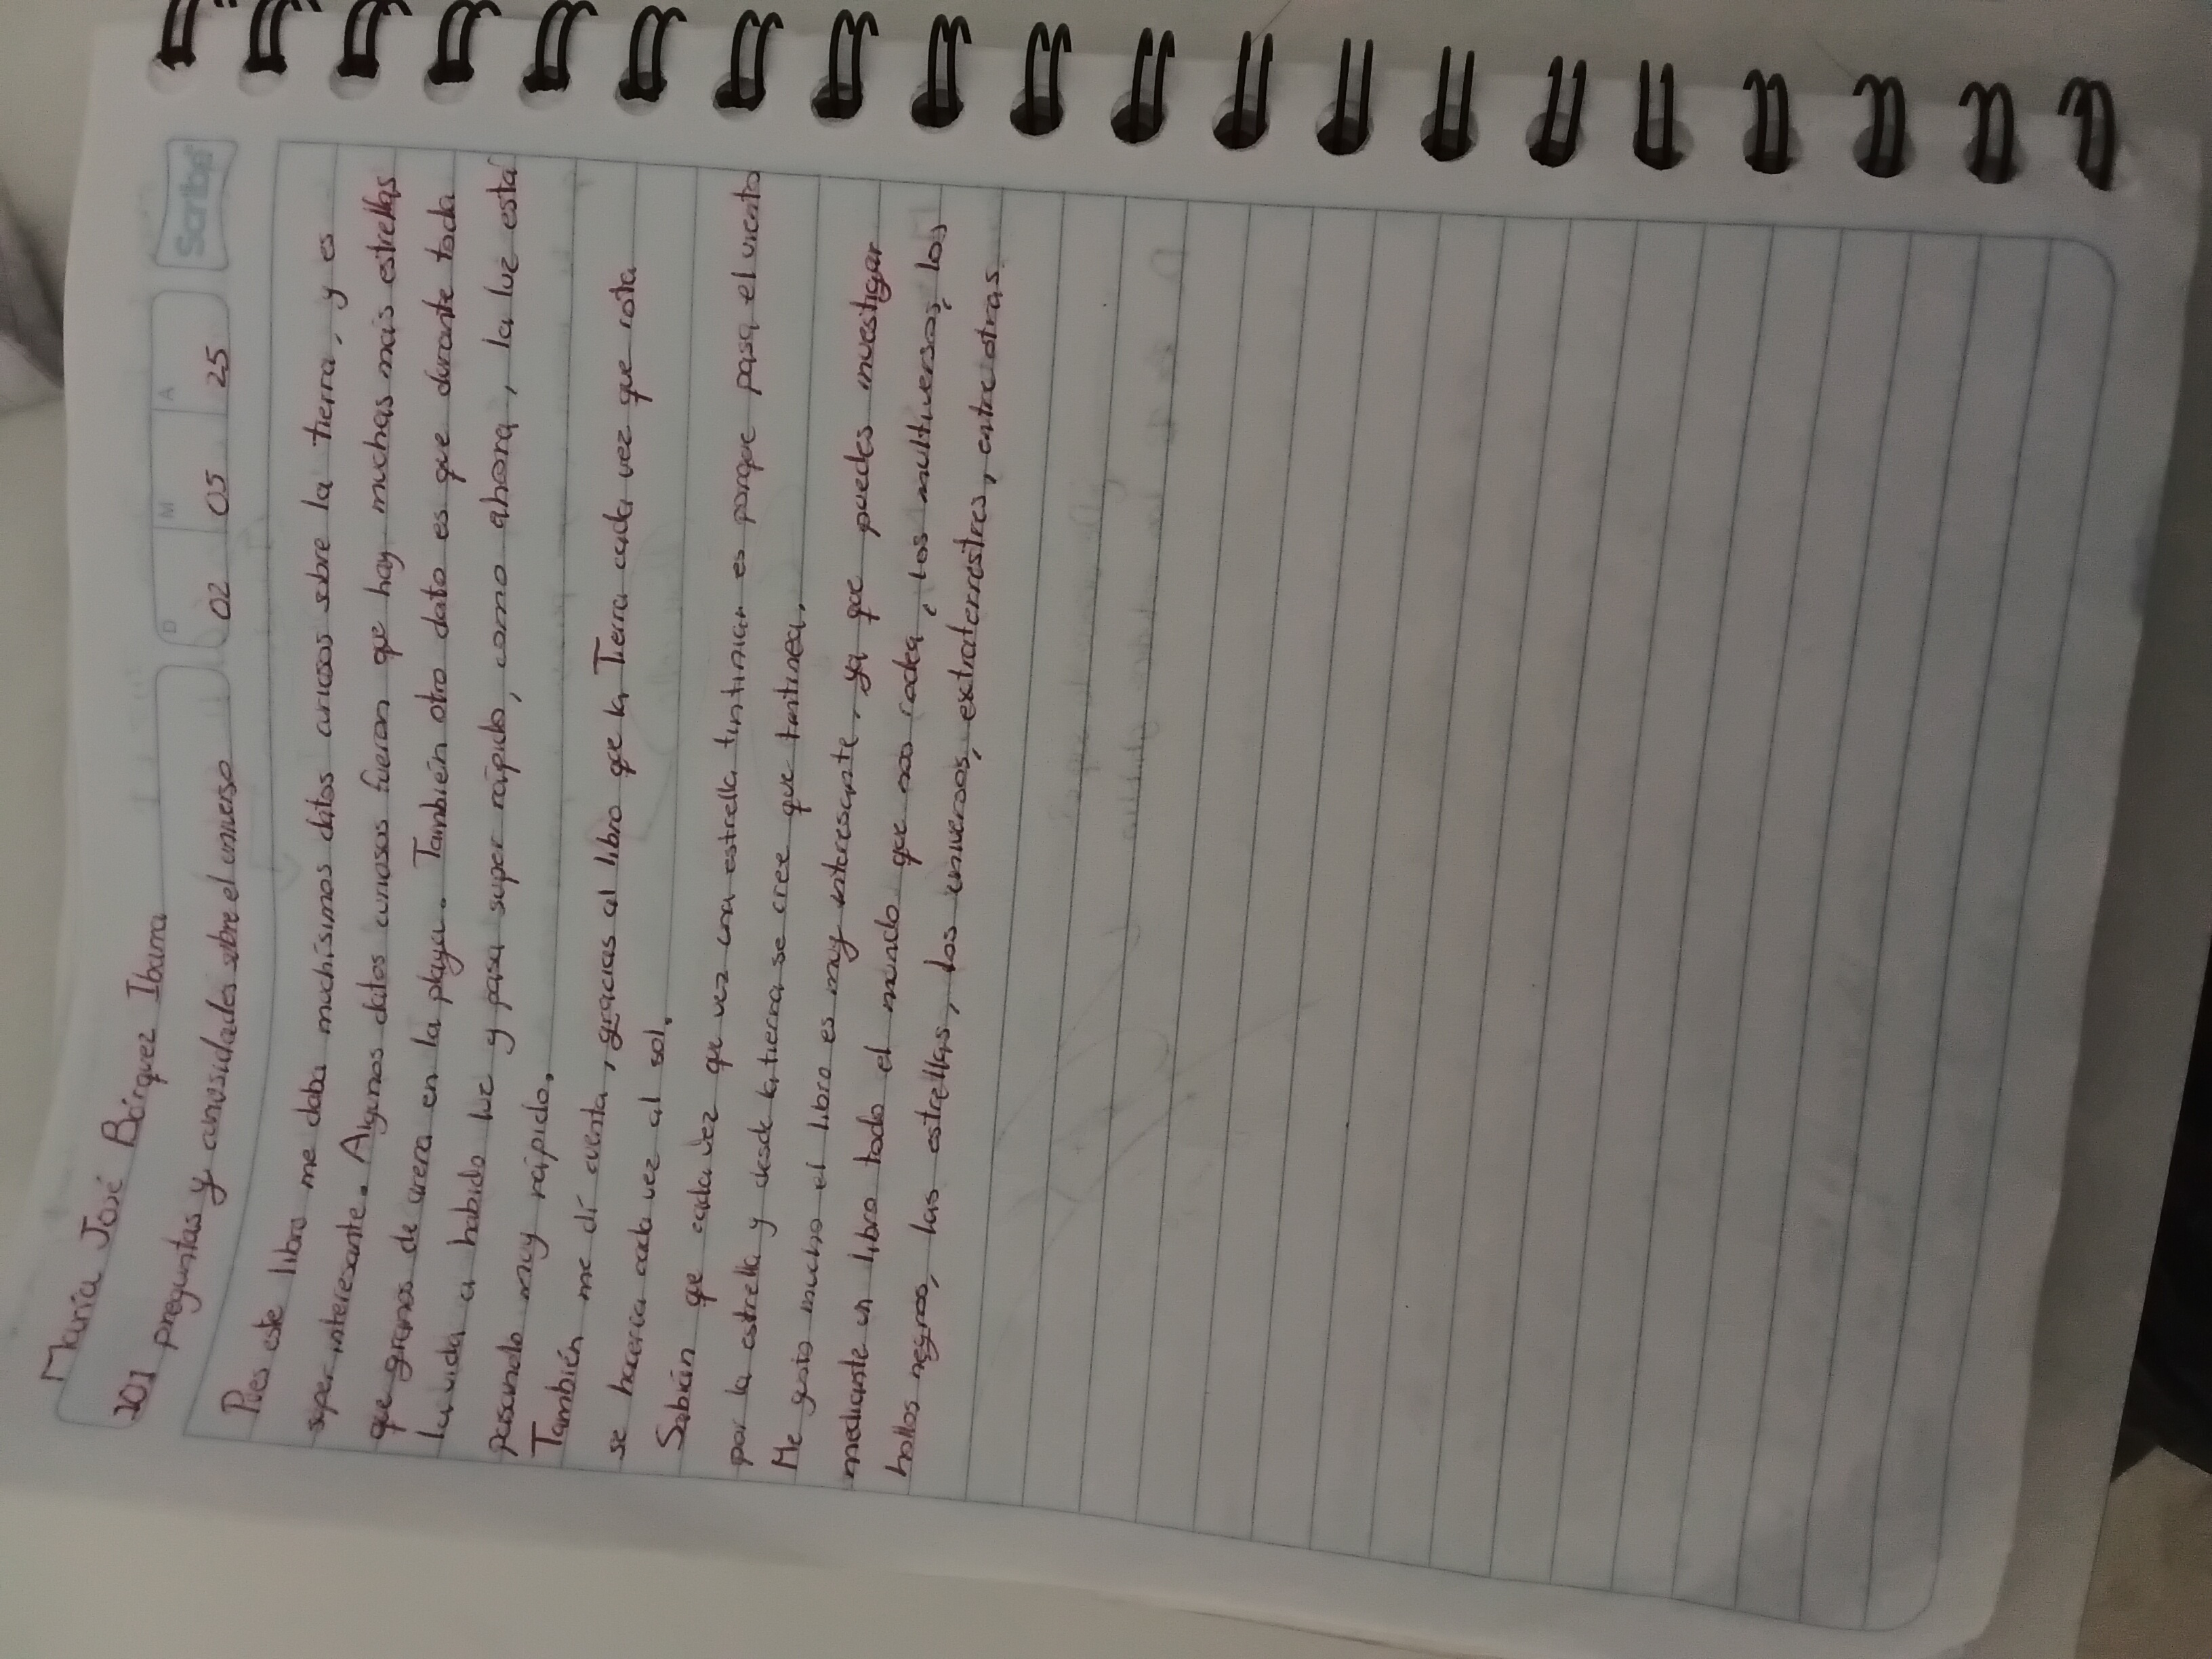 María José Bórquez Ibarra
D M A
Scribe
201 preguntas y curiosidades sobre el universo
02 05 25
Pues este libro me daba muchísimos datos curiosos sobre la tierra, y es
super interesante. Algunos datos curiosos fueron que hay muchas más estrellas
que granos de arena en la playa. También otro dato es que durante toda
la vida a habido luz y pasa super rápido, como ahora, la luz está
pasando muy rápido.
También me dí cuenta, gracias al libro que la Tierra cada vez que rota
se hacerca cada vez al sol.
Sabían que cada vez que vez una estrella tintinar es porque pasa el viento
por la estrella y desde la tierra se cree que tintinea.
Me gusto mucho el libro es muy interesante, ya que puedes investigar
mediante un libro todo el mundo que nos rodea, los multiversos, los
hollos negros, las estrellas, los universos, extraterrestres, entre otras.